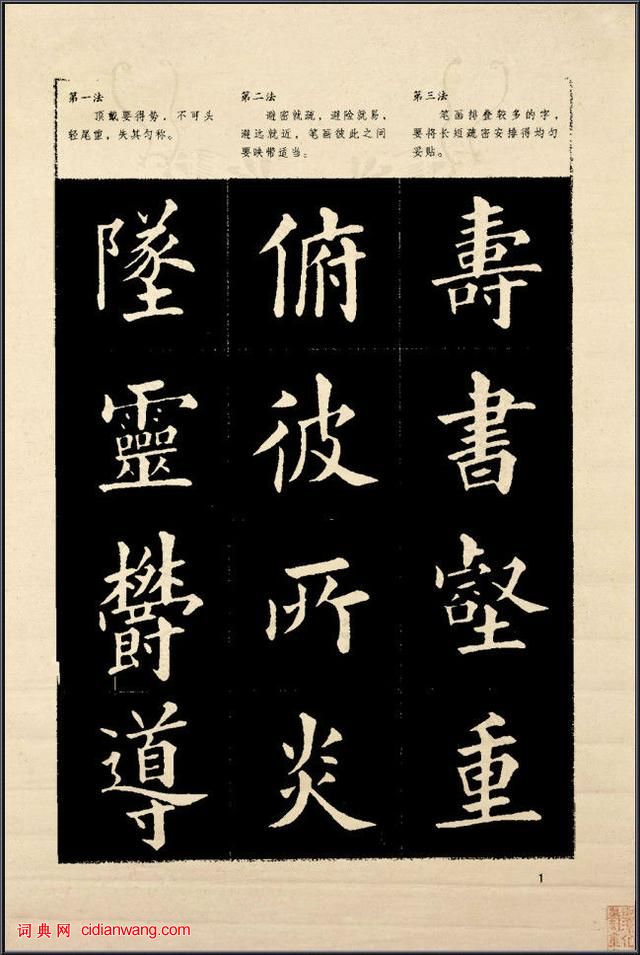 第一法
顶戴要得势，不可头
轻尾重，失其匀称。
第二法
避密就疏，避险就易，
避远就近，笔画彼此之间
要映带适当。
第三法
笔画排叠较多的字，
要将长短疏密安排得均匀
妥贴。
墜
靈
鬱
導
俯
彼
所
炎
壽
書
壑
重
1
词典网 cidianwang.com